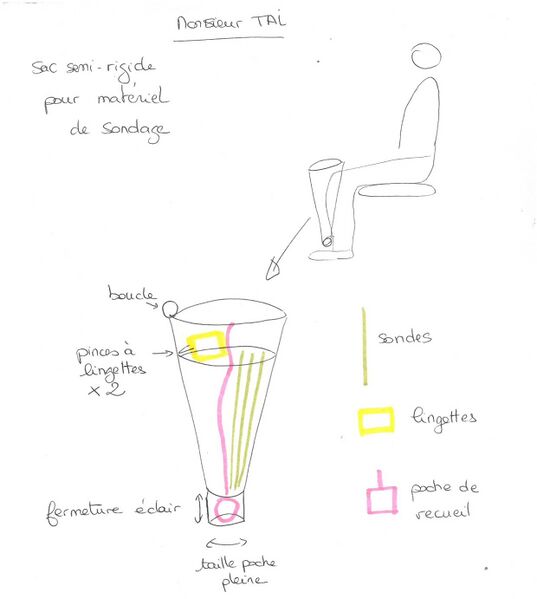 Monsieur TAL
sac semi-rigide
pour matériel
de sondage
boucle
pinces à
lingettes
x2
fermeture éclair
taille poche
pleine
sondes
lingettes
poche de
recueil